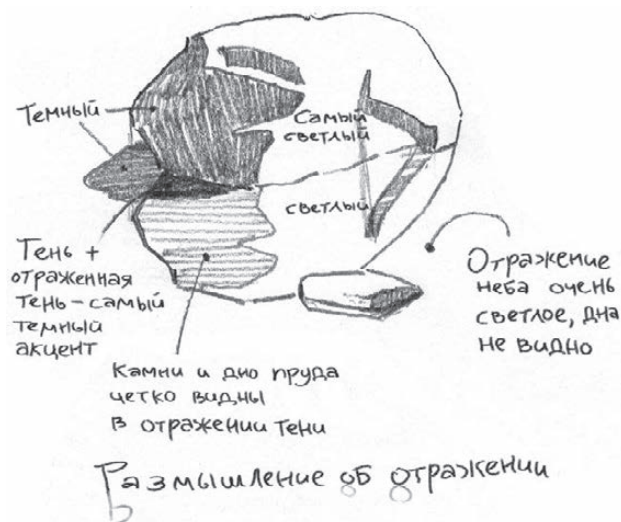 Темный
Самый
светлый
светлый
Тень +
отраженная
тень – самый
темный
акцент
Отражение
неба очень
светлое, дна
не видно
Камни и дно пруда
четко видны
в отражении тени
Размышление об отражении